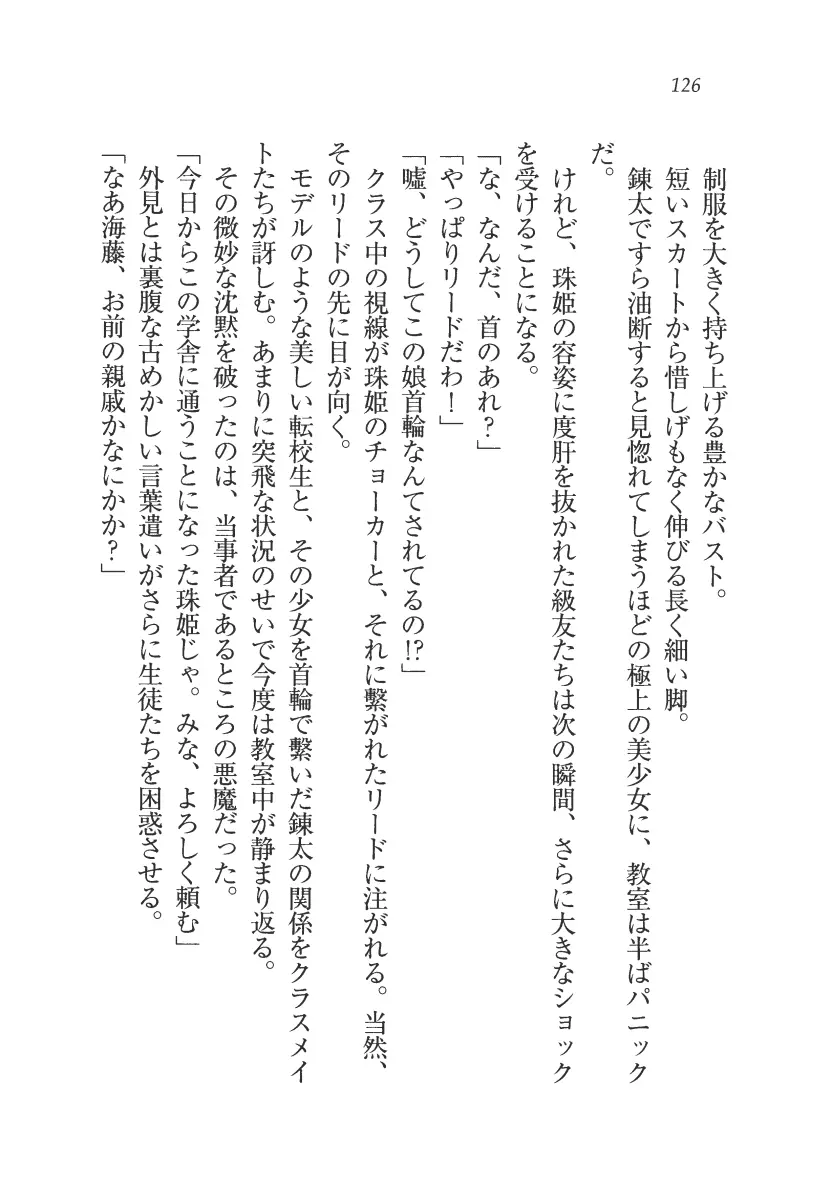 126
制服を大きく持ち上げる豊かなバスト。
短いスカートから惜しげもなく伸びる長く細い脚。
錬太ですら油断すると見惚れてしまうほどの極上の美少女に、教室は半ばパニック
だ。
けれど、珠姫の容姿に度肝を抜かれた級友たちは次の瞬間、さらに大きなショック
を受けることになる。
「な、なんだ、首のあれ？」
「やっぱりリードだわ！」
「嘘、どうしてこの娘首輪なんてされてるの!?」
クラス中の視線が珠姫のチョーカーと、それに繋がれたリードに注がれる。当然、
そのリードの先に目が向く。
モデルのような美しい転校生と、その少女を首輪で繋いだ錬太の関係をクラスメイ
トたちが訝しむ。あまりに突飛な状況のせいで今度は教室中が静まり返る。
その微妙な沈黙を破ったのは、当事者であるところの悪魔だった。
「今日からこの学舎に通うことになった珠姫じゃ。みな、よろしく頼む」
外見とは裏腹な古めかしい言葉遣いがさらに生徒たちを困惑させる。
「なあ海藤、お前の親戚かなにかか？」